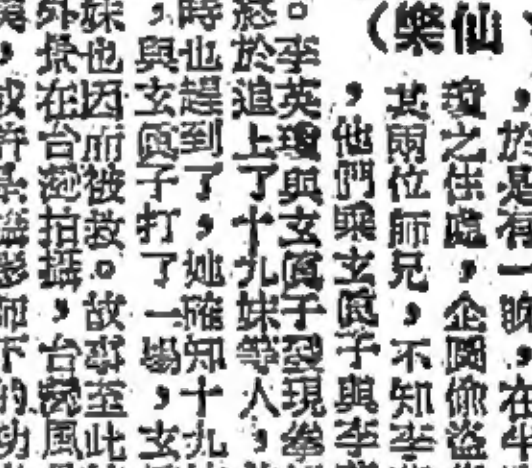 （樂仙
，於是有一晚，在
瓊之住處，企圖偷盜
其兩位師兄，不知李
，他們乘玄眞子與李
。李英瓊與玄眞子發現拳
於追上了十九妹等人，
時也趕到了，她確知十九
，與玄眞子打了一場，玄
妹也因而被救。故事至此
外景在台灣拍攝，台灣風
，或許是攝影師下的功